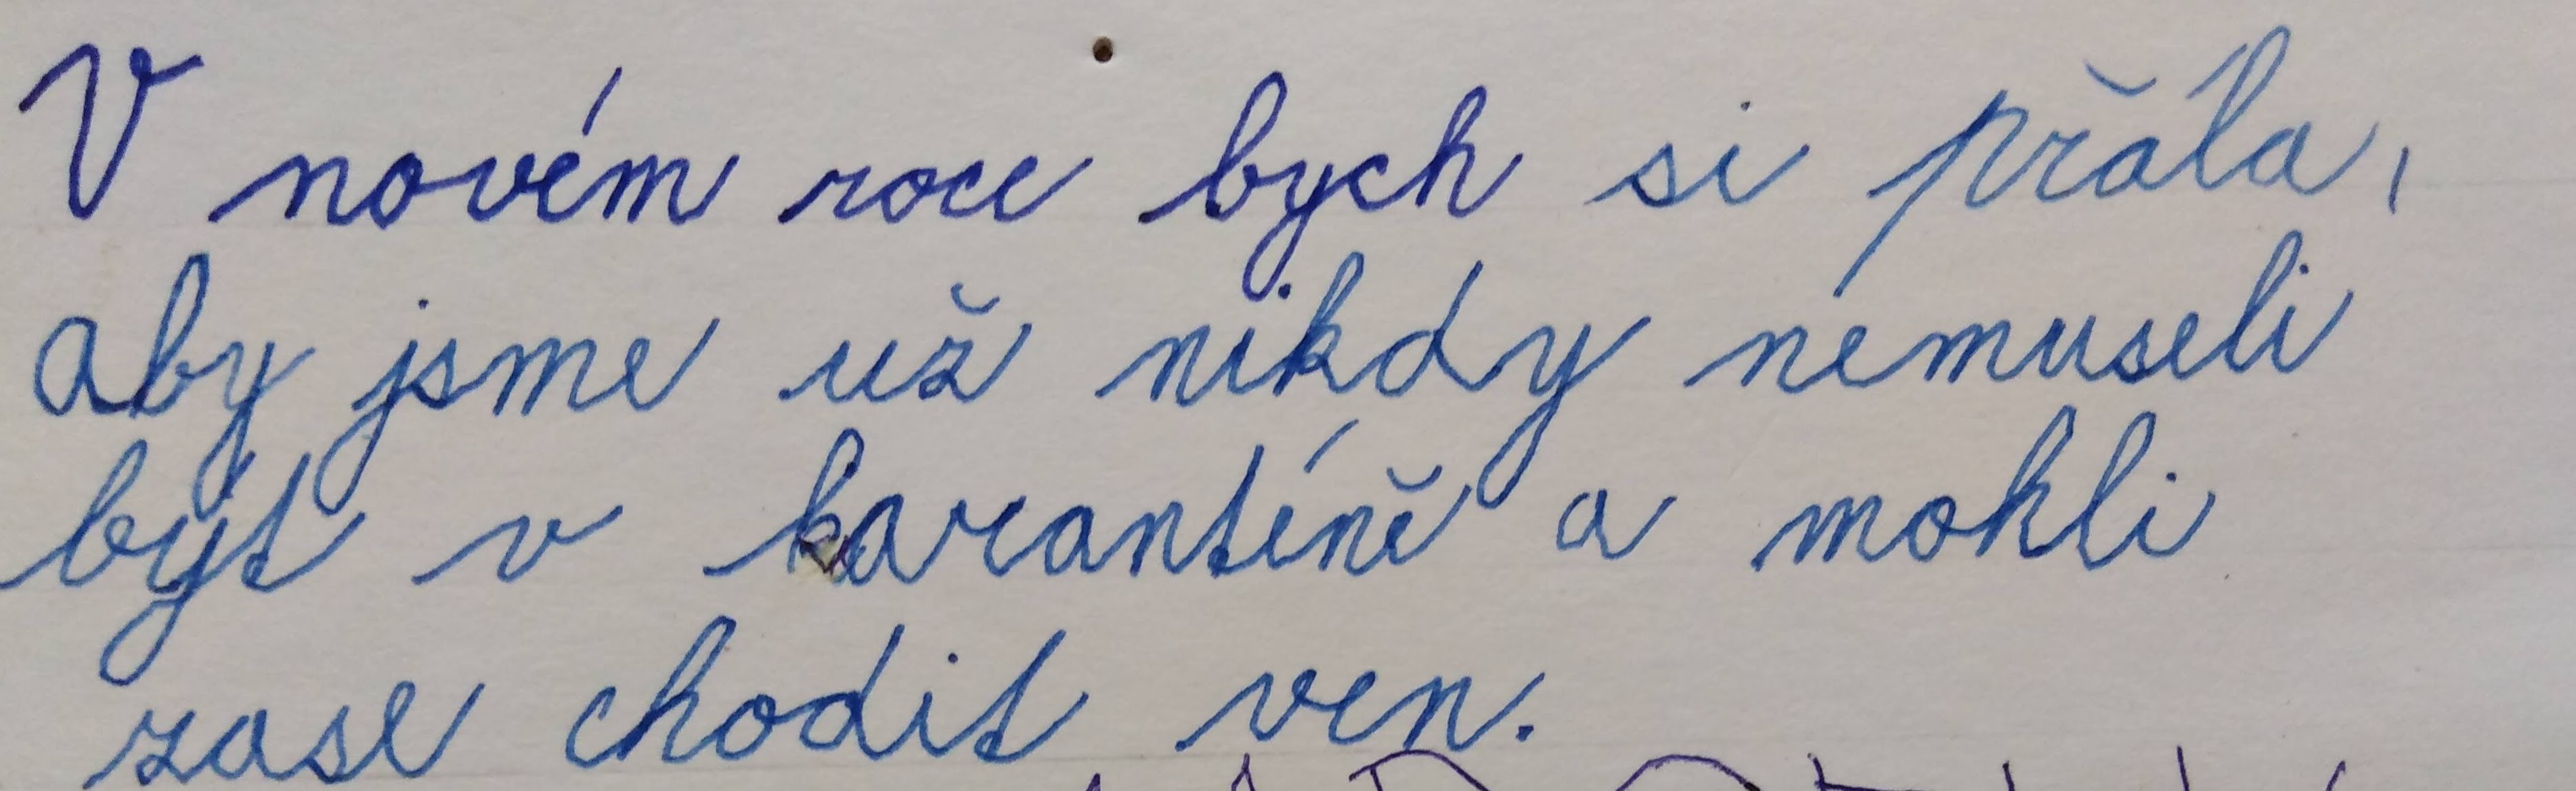 V novém roce bych si přála,
aby jsme už nikdy nemuseli
být v karanténě a mohli
zase chodit ven.